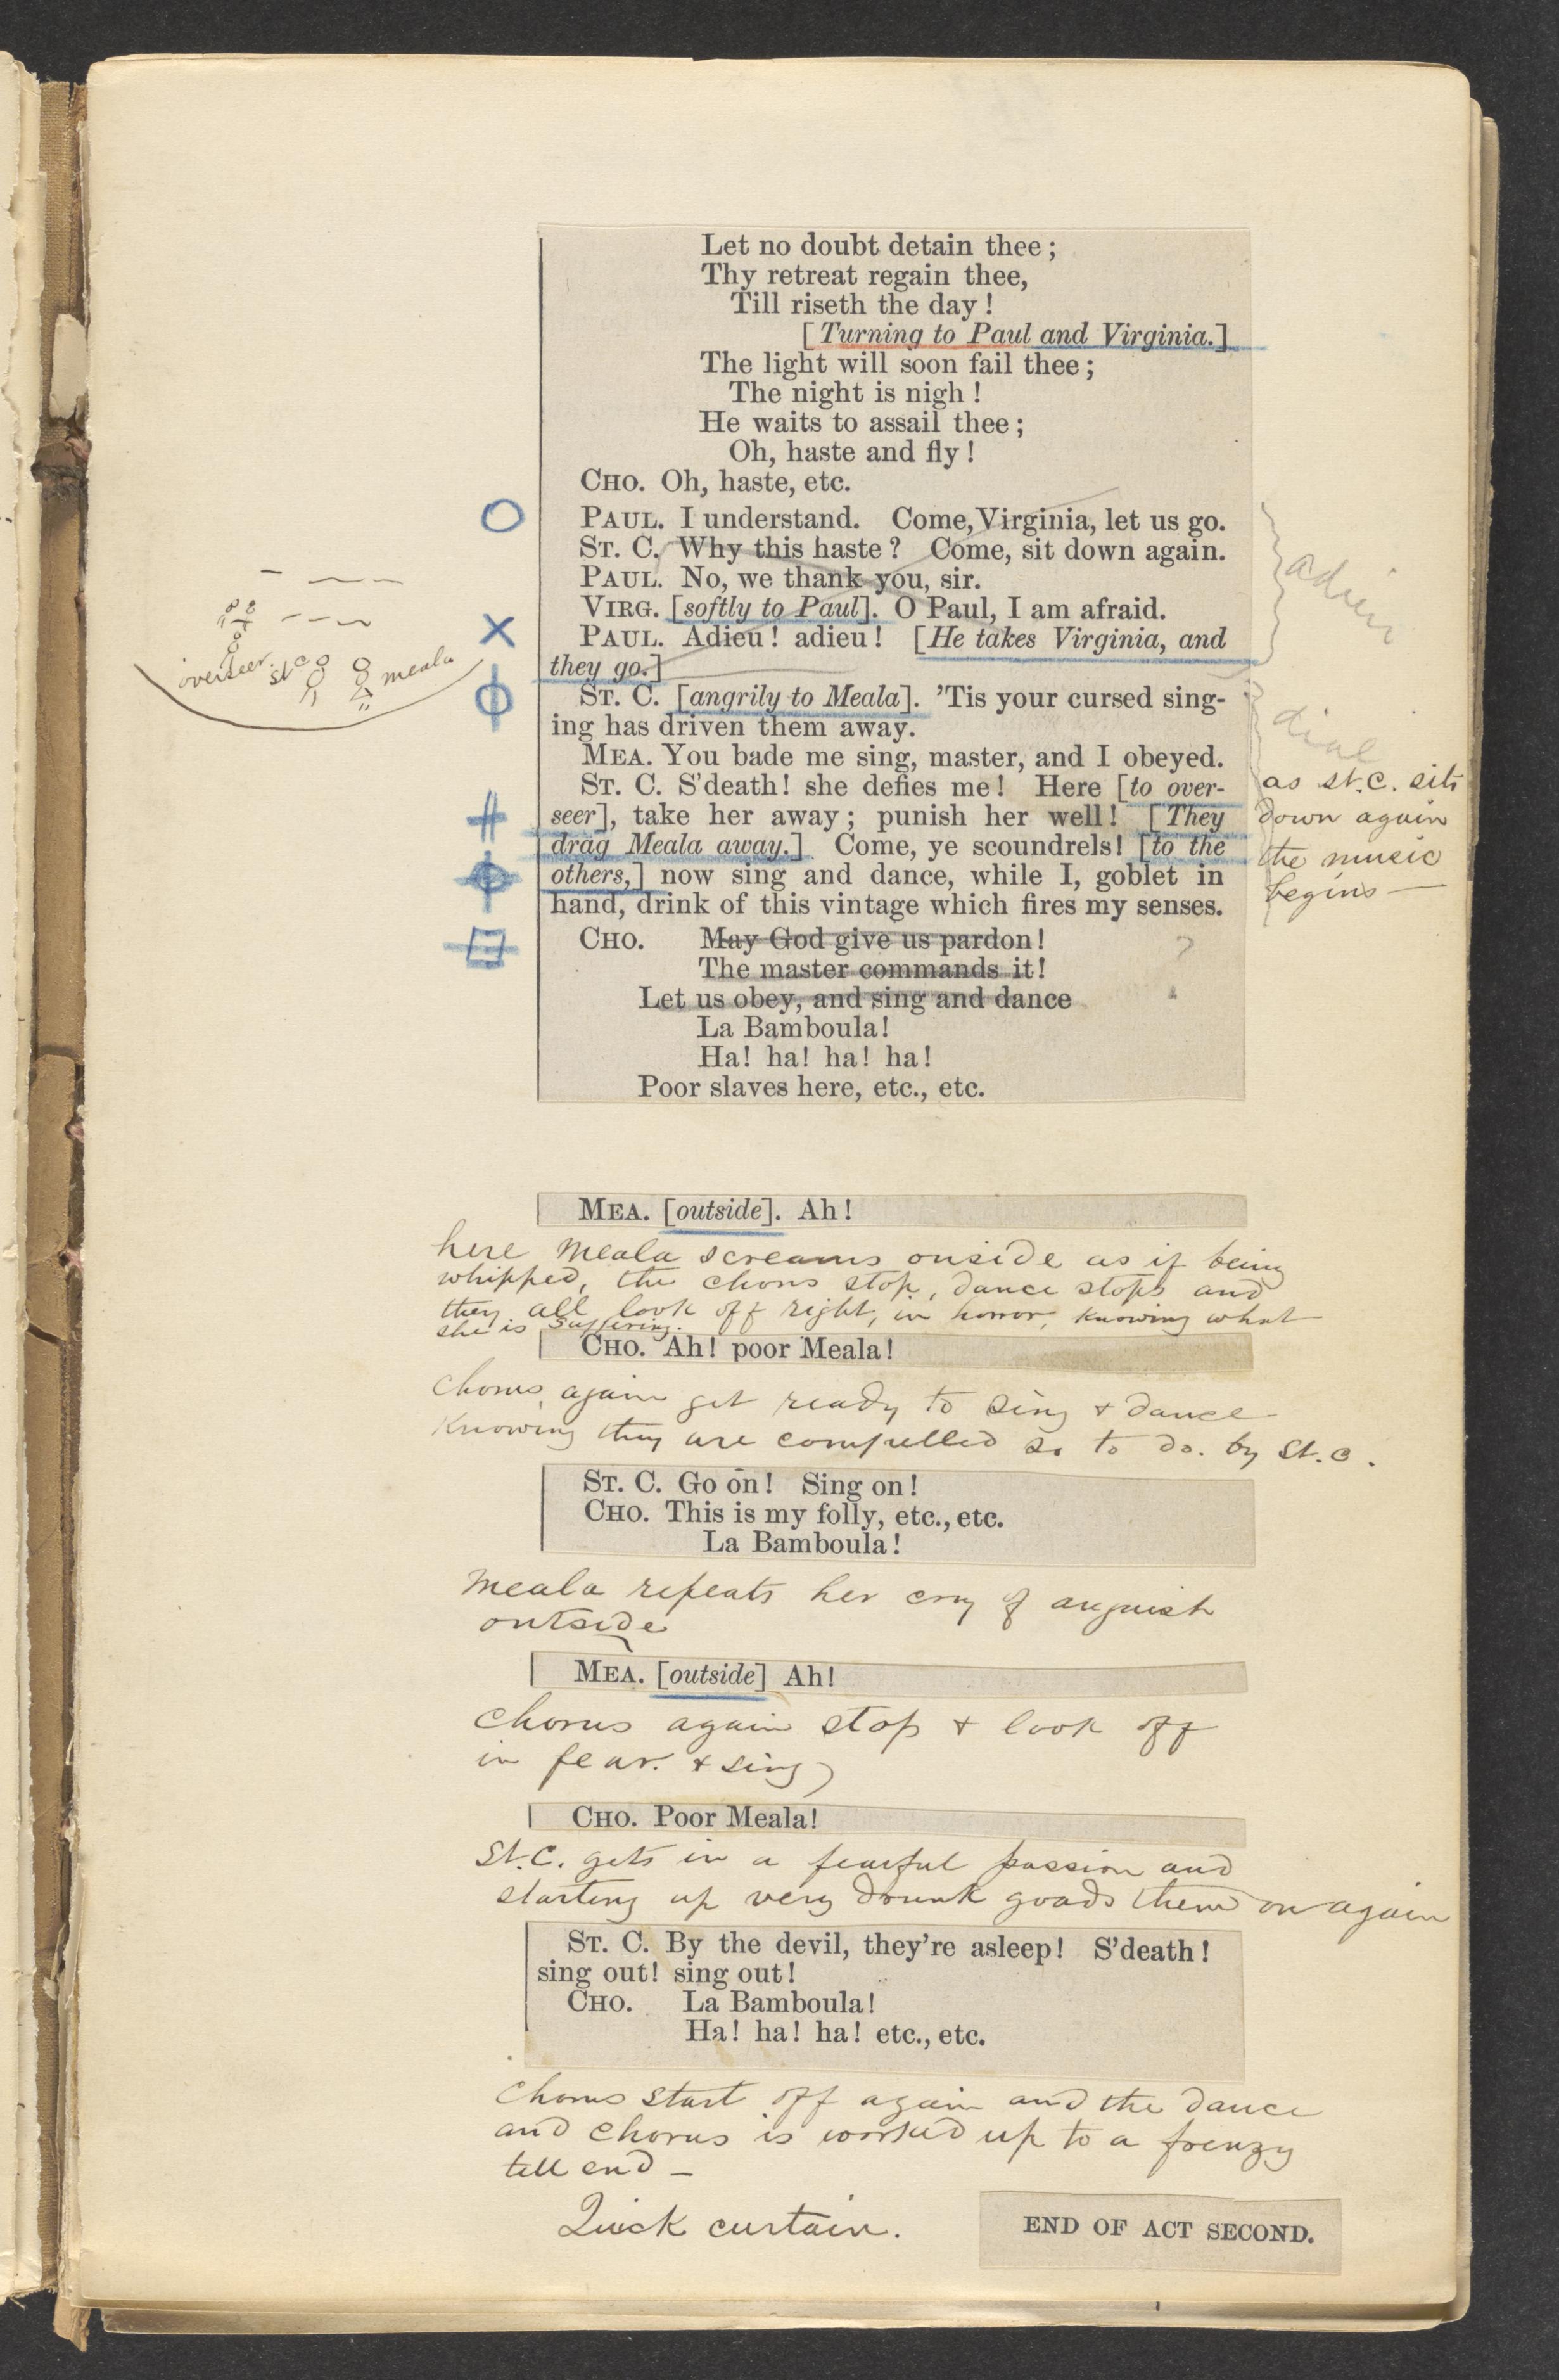 Let no doubt detain thee;
Thy retreat regain thee,
Till riseth the day!
[Turning to Paul and Virginia.]
The light will soon fail thee;
The night is nigh!
He waits to assail thee;
Oh, haste and fly!
CHO. Oh, haste, etc.
PAUL. I understand. Come, Virginia, let us go.
ST. C. Why this haste? Come, sit down again.
PAUL. No, we thank you, sir.
VIRG. [softly to Paul]. O Paul, I am afraid.
PAUL. Adieu! adieu! [He takes Virginia, and
they go.]
adieu
overseer. St C meala
ST. C. [angrily to Meala]. 'Tis your cursed sing-
ing has driven them away.
MEA. You bade me sing, master, and I obeyed.
ST. C. S'death! she defies me! Here [to over-
seer], take her away; punish her well! [They
drag Meala away.] Come, ye scoundrels! [to the
others,] now sing and dance, while I, goblet in
hand, drink of this vintage which fires my senses.
dial
as St. C. sits
down again
the music
begins —
CHO. May God give us pardon!
The master commands it!
Let us obey, and sing and dance
?
La Bamboula!
Ha! ha! ha! ha!
Poor slaves here, etc., etc.
MEA. [outside]. Ah!
here Meala screams ouside as if being
whipped, the chorus stop, dance stops and
they all look off right, in horror, knowing what
she is suffering.
CHO. Ah! poor Meala!
Chorus again get ready to sing & dance
Knowing they are compelled so to do. by St. C.
ST. C. Go on! Sing on!
CHO. This is my folly, etc., etc.
La Bamboula!
Meala repeats her cry of anguish
outside
MEA. [outside] Ah!
Chorus again stop & look off
in fear. & sing)
CHO. Poor Meala!
St. C. gets in a fearful passion and
starting up very drunk goads them on again
ST. C. By the devil, they're asleep! S'death!
sing out! sing out!
CHO. La Bamboula!
Ha! ha! ha! etc., etc.
Chorus start off again and the dance
and chorus is worked up to a frenzy
till end —
Quick curtain.
END OF ACT SECOND.